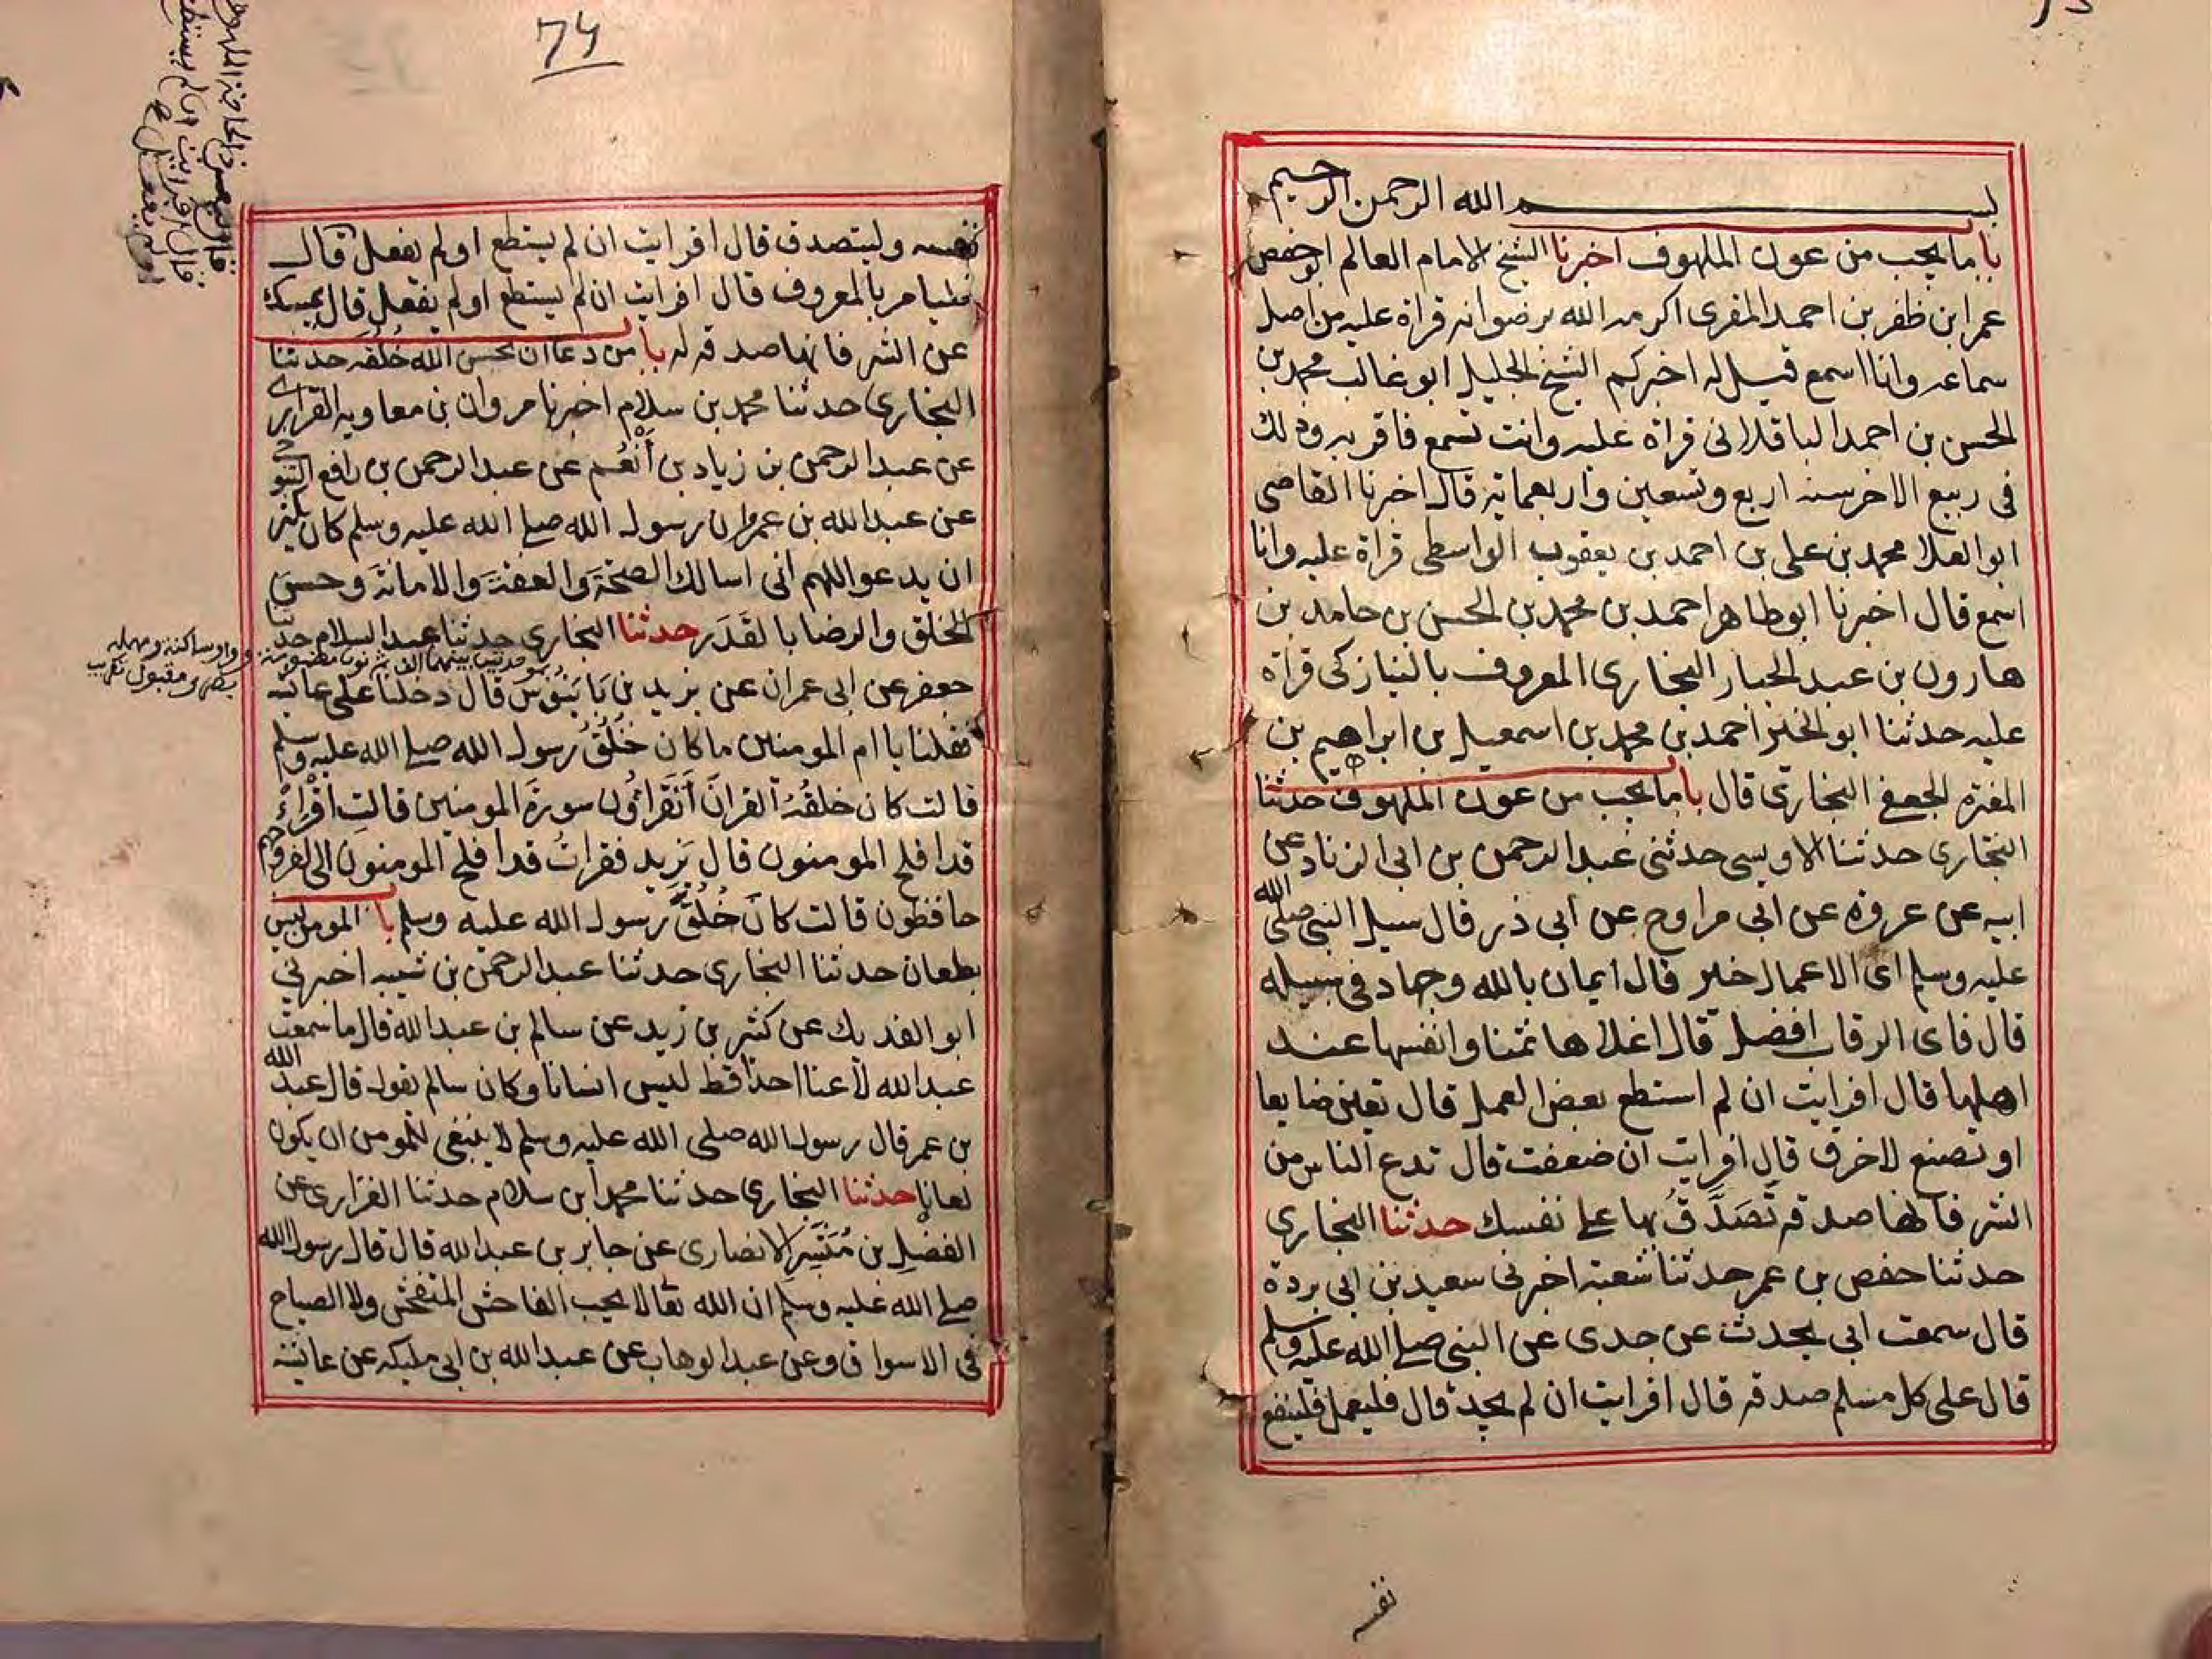 بسم الله الرحمن الرحيم
باب ما يجب من عون الملهوف اخبرنا الشيخ الامام العالم ابو حفص
عمر ابن ظفر بن احمد المقرى اكرمه الله برضوانه قراة عليه من اصل
سماعه وانا اسمع قيل له اخبركم الشيخ الجليل ابو غالب محمد بن
الحسن بن احمد الباقلانى قراة عليه وانت تسمع فاقر به وذلك
فى ربيع الاخر سنه اربع وتسعين واربعماية قال اخبرنا القاضى
ابو العلا محمد بن على بن احمد بن يعقوب الواسطى قراة عليه وانا
اسمع قال اخبرنا ابو طاهر احمد بن محمد بن الحسن بن حامد بن
هارون بن عبد الجبار البخارى المعروف بالنيازكى قراة
عليه حدثنا ابو الخير احمد بن محمد بن اسمعيل بن ابراهيم بن
المغيرة الجعفى البخارى قال باب ما يجب من عون الملهوف حدثنا
البخارى حدثنا الاويسى حدثنى عبد الرحمن بن ابى الزناد عن
ابيه عن عروة عن ابى مراوح عن ابى ذر قال سيل النبى صلى الله
عليه وسلم اى الاعمال خير قال ايمان بالله وجهاد فى سبيله
قال فاى الرقاب افضل قال اغلاها ثمنا وانفسها عند
اهلها قال افرايت ان لم استطع بعض العمل قال تعين ضايعا
او تصنع لاخرق قال افرايت ان ضعفت قال تدع الناس من
الشر فانها صدقة تَصَدَّقُ بها على نفسك حدثنا البخارى
حدثنا حفص بن عمر حدثنا شعبة اخبرنى سعيد بن ابى بردة
قال سمعت ابى يحدث عن جدى عن النبى صلى الله عليه وسلم
قال على كل مسلم صدقة قال افرايت ان لم يجد قال فليعمل فلينفع
نفسه
74
نفسه وليتصدق قال افرايت ان لم يستطع او لم يفعل قال
فليامر بالمعروف قال افرايت ان لم يستطع او لم يفعل قال يمسك
عن الشر فانها صدقة له باب من دعا ان يحسن الله خُلُقَه حدثنا
البخارى حدثنا محمد بن سلام اخبرنا مروان بن معاويه الفزارى
عن عبد الرحمن بن زياد بن أَنْعُم عن عبد الرحمن بن رافع التنوخى
عن عبد الله بن عمرو ان رسول الله صلى الله عليه وسلم كان يكثر
ان يدعو اللهم انى اسالك الصحةَ والعفةَ والامانةَ وحسنَ
الخلق والرضا بالقَدَر حدثنا البخارى حدثنا عبد السلام حدثنا
جعفر عن ابى عمران عن يزيد بن بَابَنُوس قال دخلنا على عايشة
فقلنا يا ام المومنين ما كان خُلُقُ رسول الله صلى الله عليه وسلم
قالت كان خلقُهُ القرانَ أتَقراؤُن سورةَ المومنين قالت اقْراءْ
قد افلح المومنون قال يزيد فقراتُ قد افلح المومنون الى لفروجهم
حافظون قالت كان خُلُقَ رسول الله عليه وسلم باب المومن ليس
بطعان حدثنا البخارى حدثنا عبد الرحمن بن شيبه اخبرنى
ابو الفديك عن كثير بن زيد عن سالم بن عبد الله قال ما سمعت
عبد الله لاعنا احدا قط ليس انسانا وكان سالم يقول قال عبد الله
بن عمر قال رسول الله صلى الله عليه وسلم لا ينبغى للمومن ان يكون
لعانا حدثنا البخارى حدثنا محمد ابن سلام حدثنا الفزارى عن
الفضلِ بن مُبَشِّرِ الانصارى عن جابر بن عبد الله قال قال رسول الله
صلى الله عليه وسلم ان الله تعالا لا يحب الفاحش المتفحش ولا الصياح
فى الاسواق وعن عبد الوهاب عن عبد الله بن ابى مليكه عن عايشة
وواو ساكنة ومهمله
بصرى مقبول تقريب